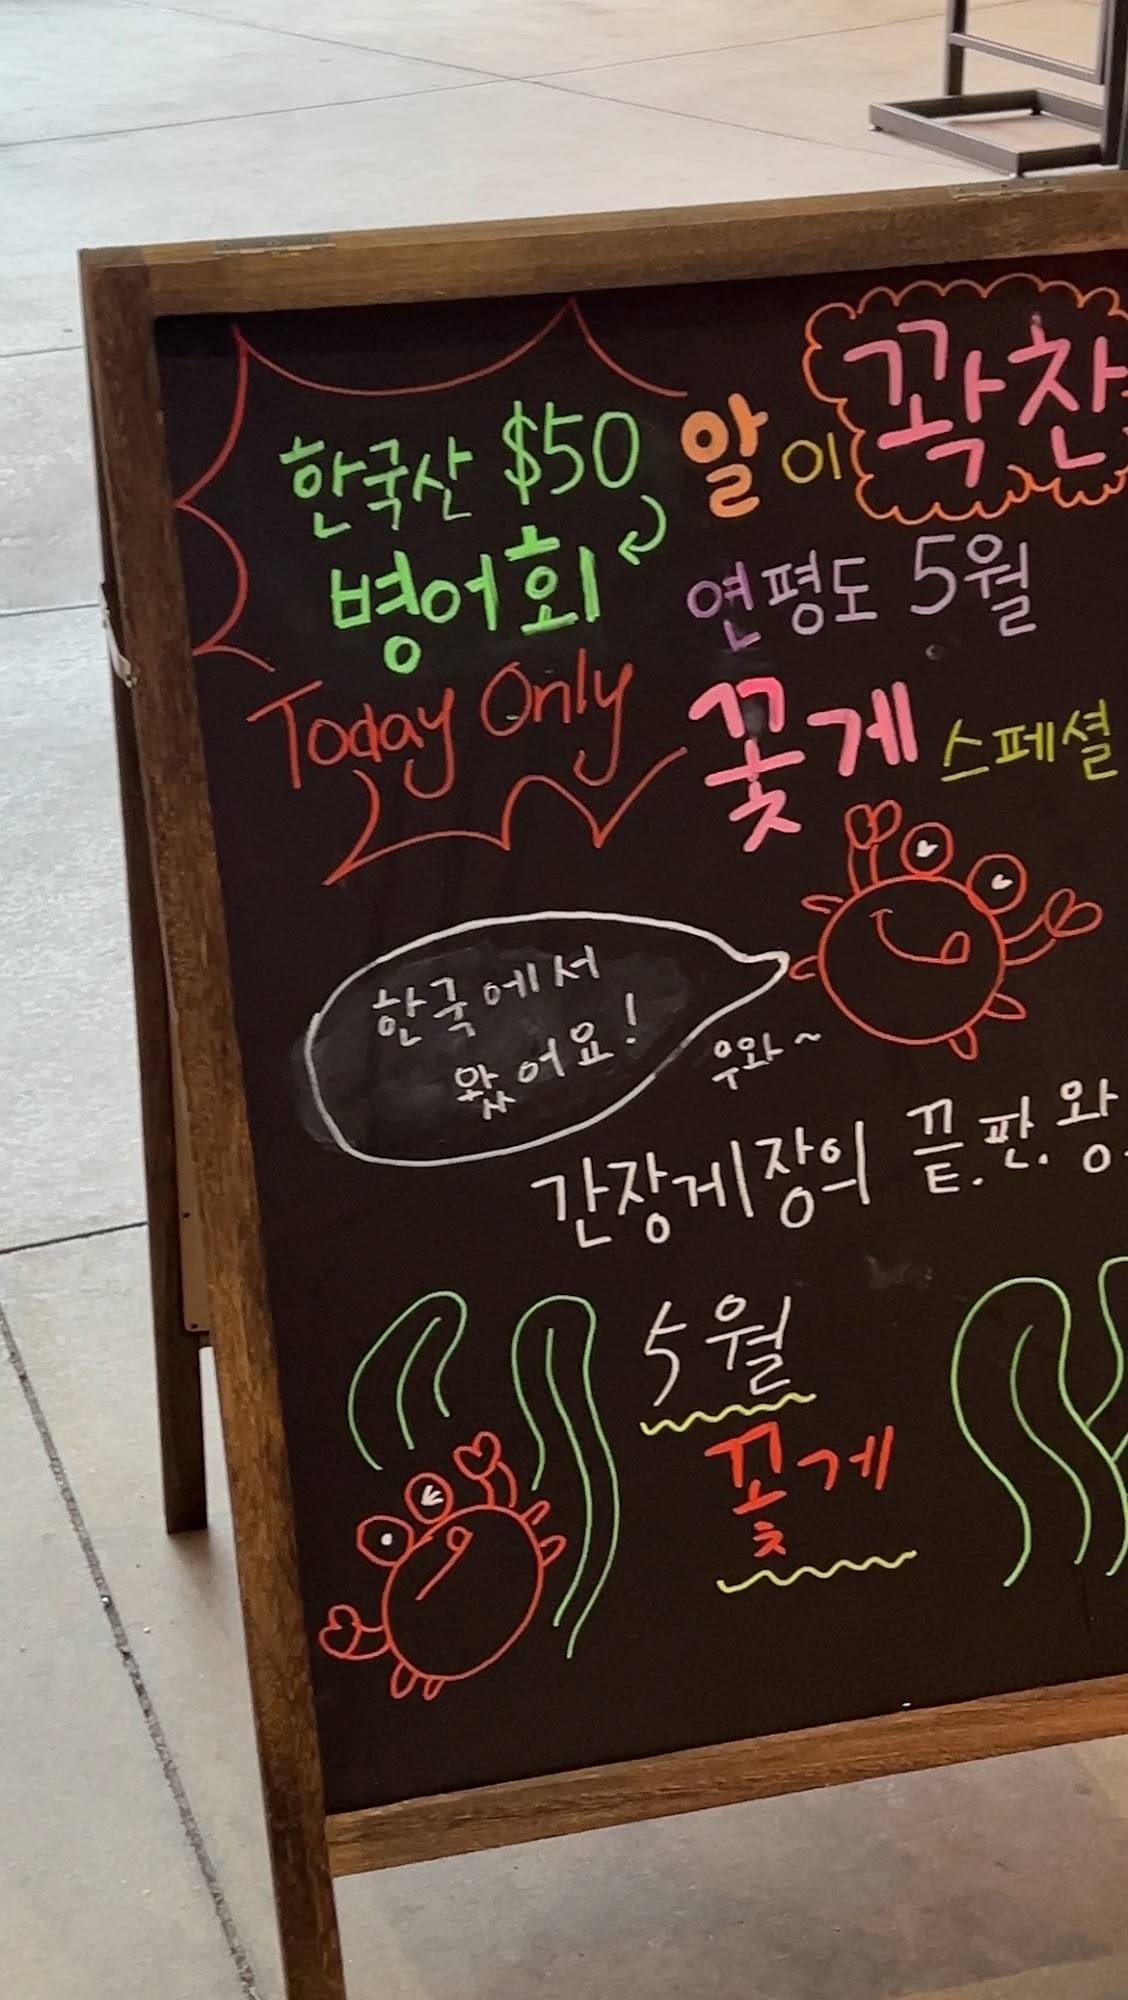 한국산 $50
병어회
Today Only
알이 꽉찬
연평도 5월
꽃게 스페셜
한국에서
왔어요!
우와~
간장게장의 끝.판.왕.
5월
꽃게